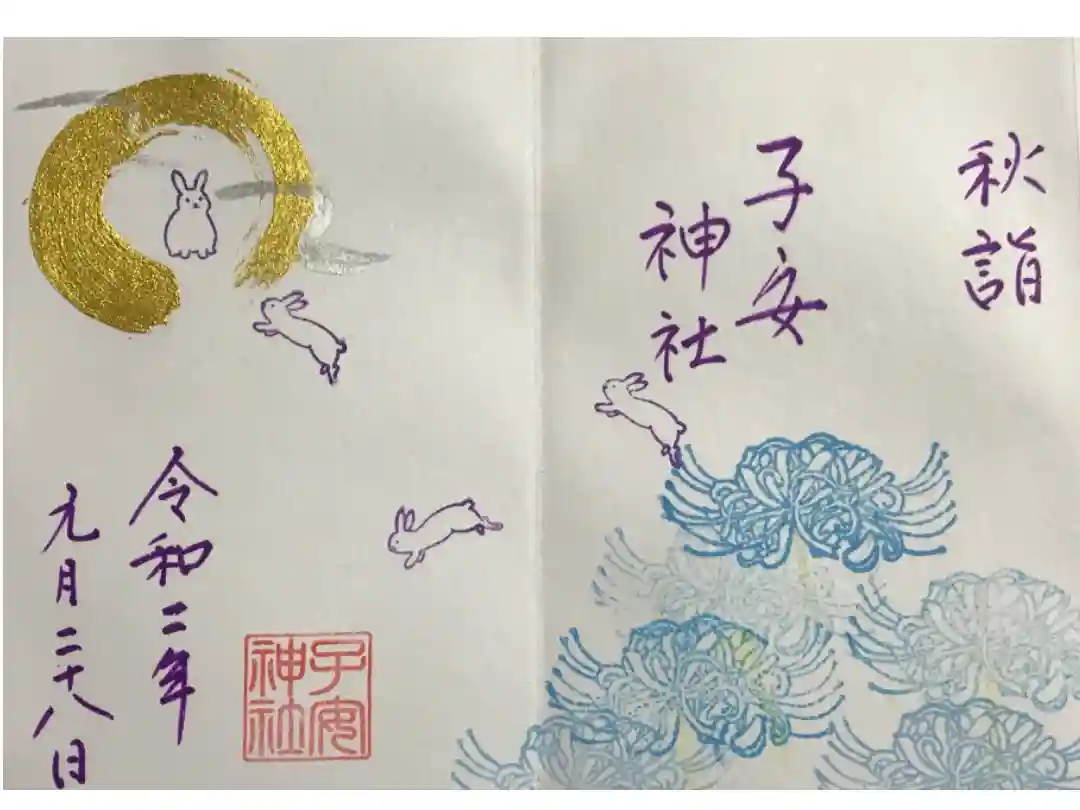 秋詣
子安
神社
令和二年
元月二十八日
子安
神社